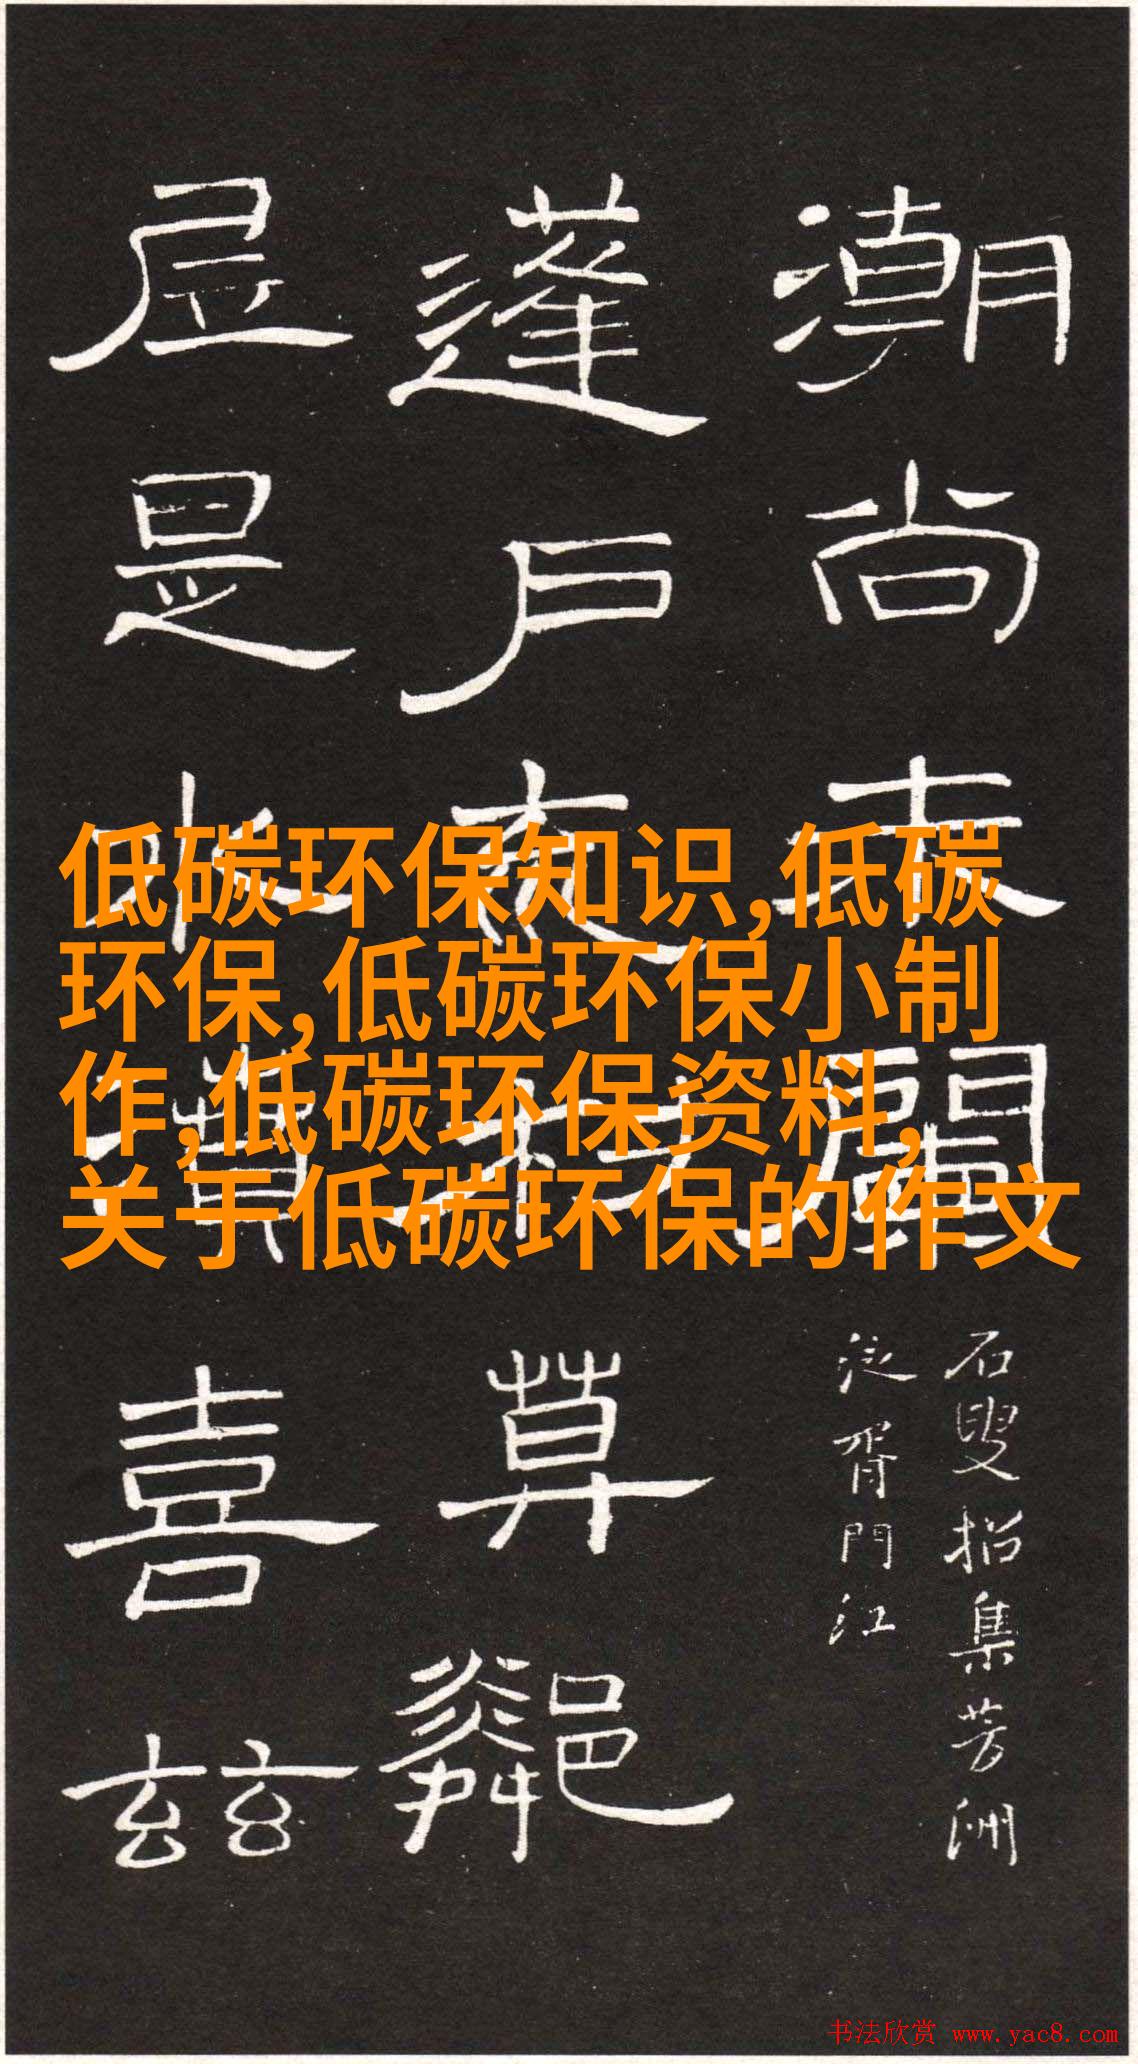 低碳环保知识,低碳
环保,低碳环保小制
作,低碳环保资料,
关于低碳环保的作文
潮尚未闌
石叟招集芳洲
泛胥門江
蓬戶
莫鄰
是水
喜茲
书法欣赏 www.yac8.com